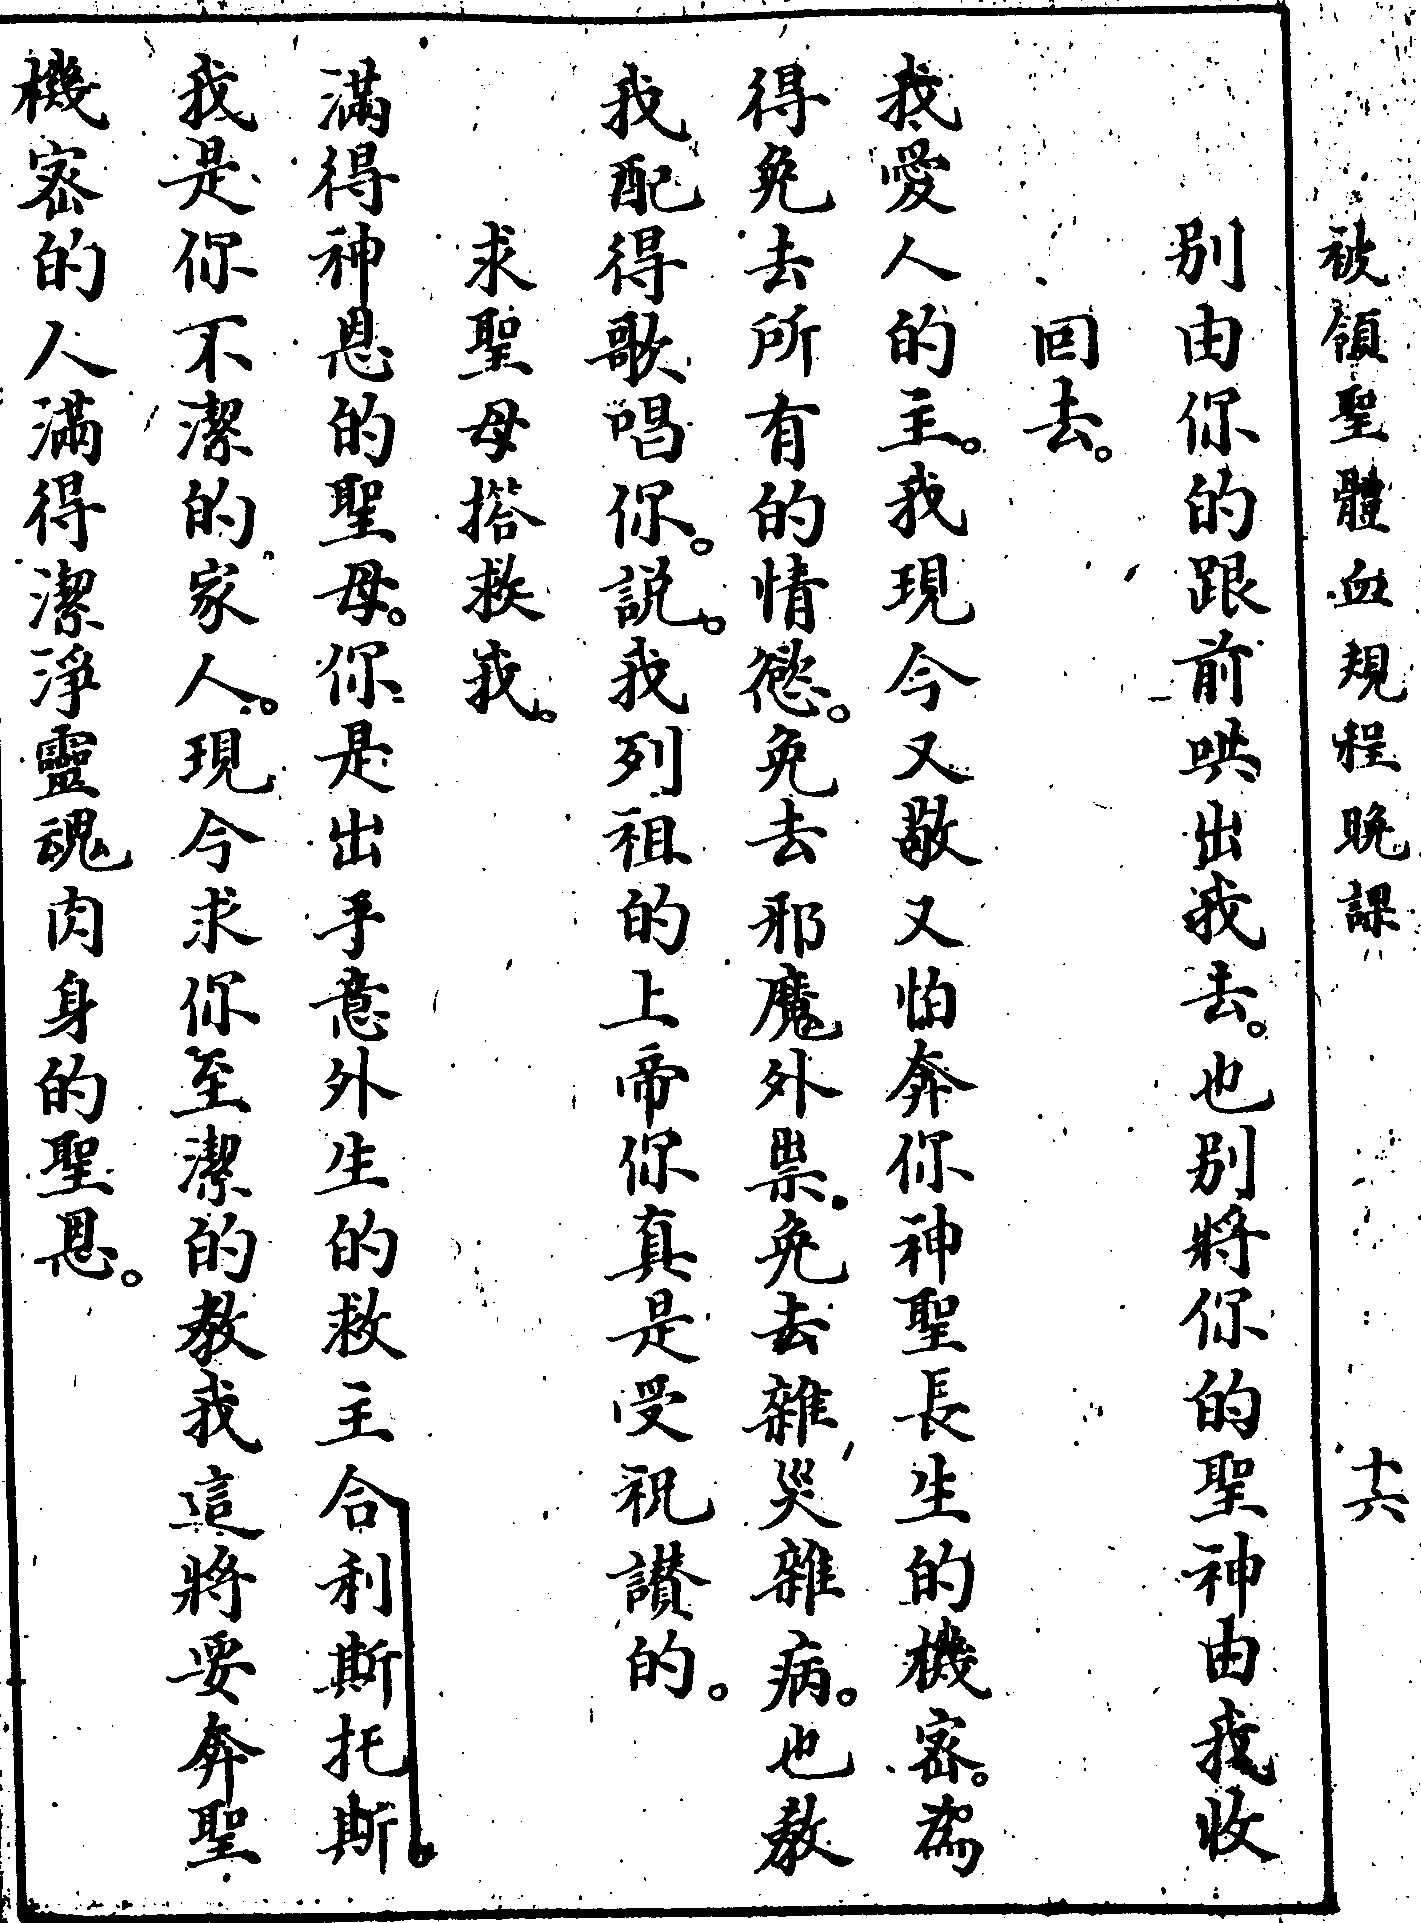 被領聖體血規程晚課 十六
别由你的跟前哄出我去。也别將你的聖神由我收
回去。
我愛人的主。我現今又敬又怕奔你神聖長生的機密。為
得免去所有的情慾。免去邪魔外祟。免去雜災雜病。也教
我配得歌唱你。説。我列祖的上帝你真是受祝讃的。
求聖母搭救我。
滿得神恩的聖母。你是出乎意外生的救主合利斯托斯。
我是你不潔的家人。現今求你至潔的教我這將要奔聖
機密的人滿得潔淨靈魂肉身的聖恩。